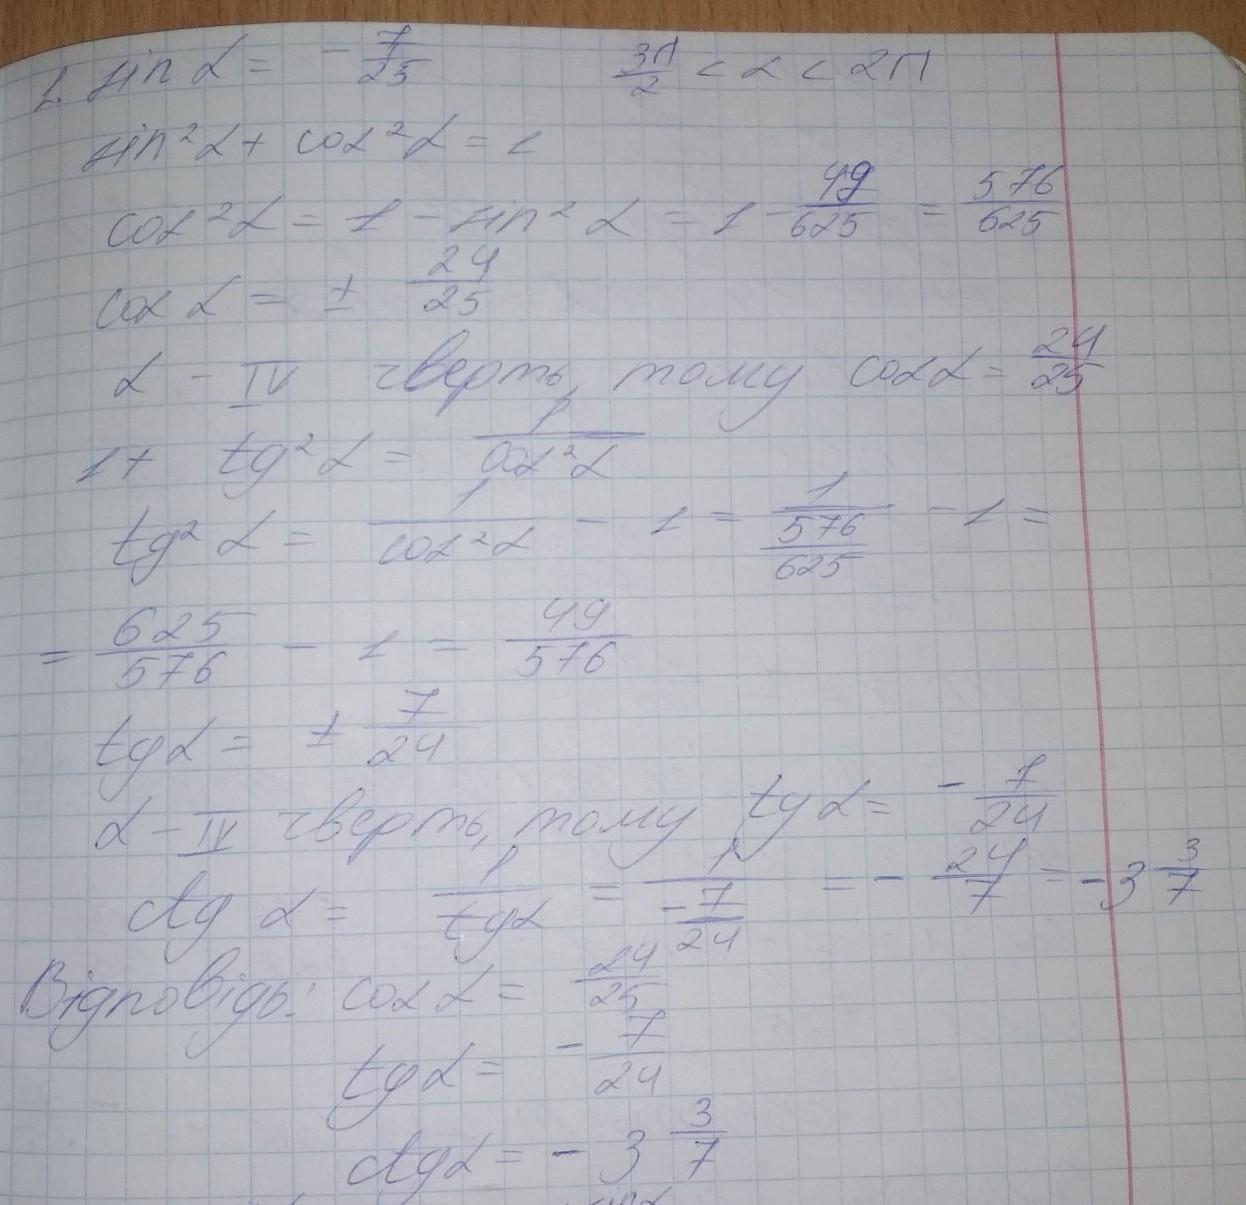 1. sin α = - 7/25   3π/2 < α < 2π
sin²α + cos²α = 1
cos²α = 1 - sin²α = 1 - 49/625 = 576/625
cos α = ± 24/25
α - IV чверть, тому cos α = 24/25
1 + tg²α = 1/cos²α
tg²α = 1/cos²α - 1 = 1/(576/625) - 1 =
= 625/576 - 1 = 49/576
tg α = ± 7/24
α - IV чверть, тому tg α = - 7/24
ctg α = 1/tg α = 1/(-7/24) = - 24/7 = - 3 3/7
Відповідь: cos α = 24/25
tg α = - 7/24
ctg α = - 3 3/7